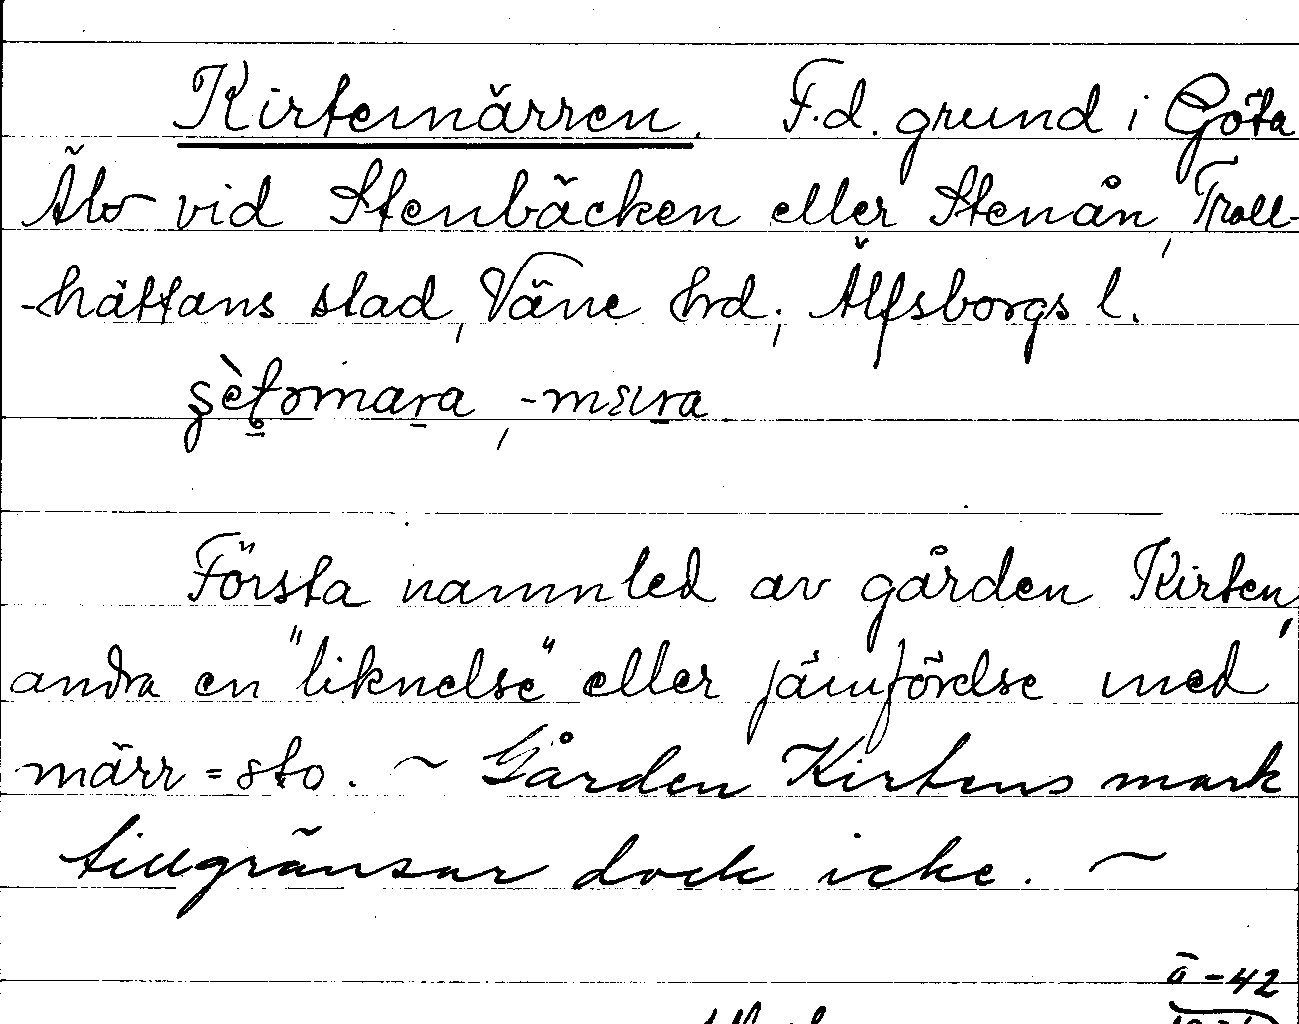 Kirtemärren. F.d. grund i Göta
Älv vid Stenbäcken eller Stenån, Troll-
-hättans stad, Väne hrd; Älfsborgs l.

Första namnled av gården Kirten,
andra en "liknelse" eller jämförelse med
märr = sto. ~ Gården Kirtens mark
tillgränsar dock icke. ~
ö-42